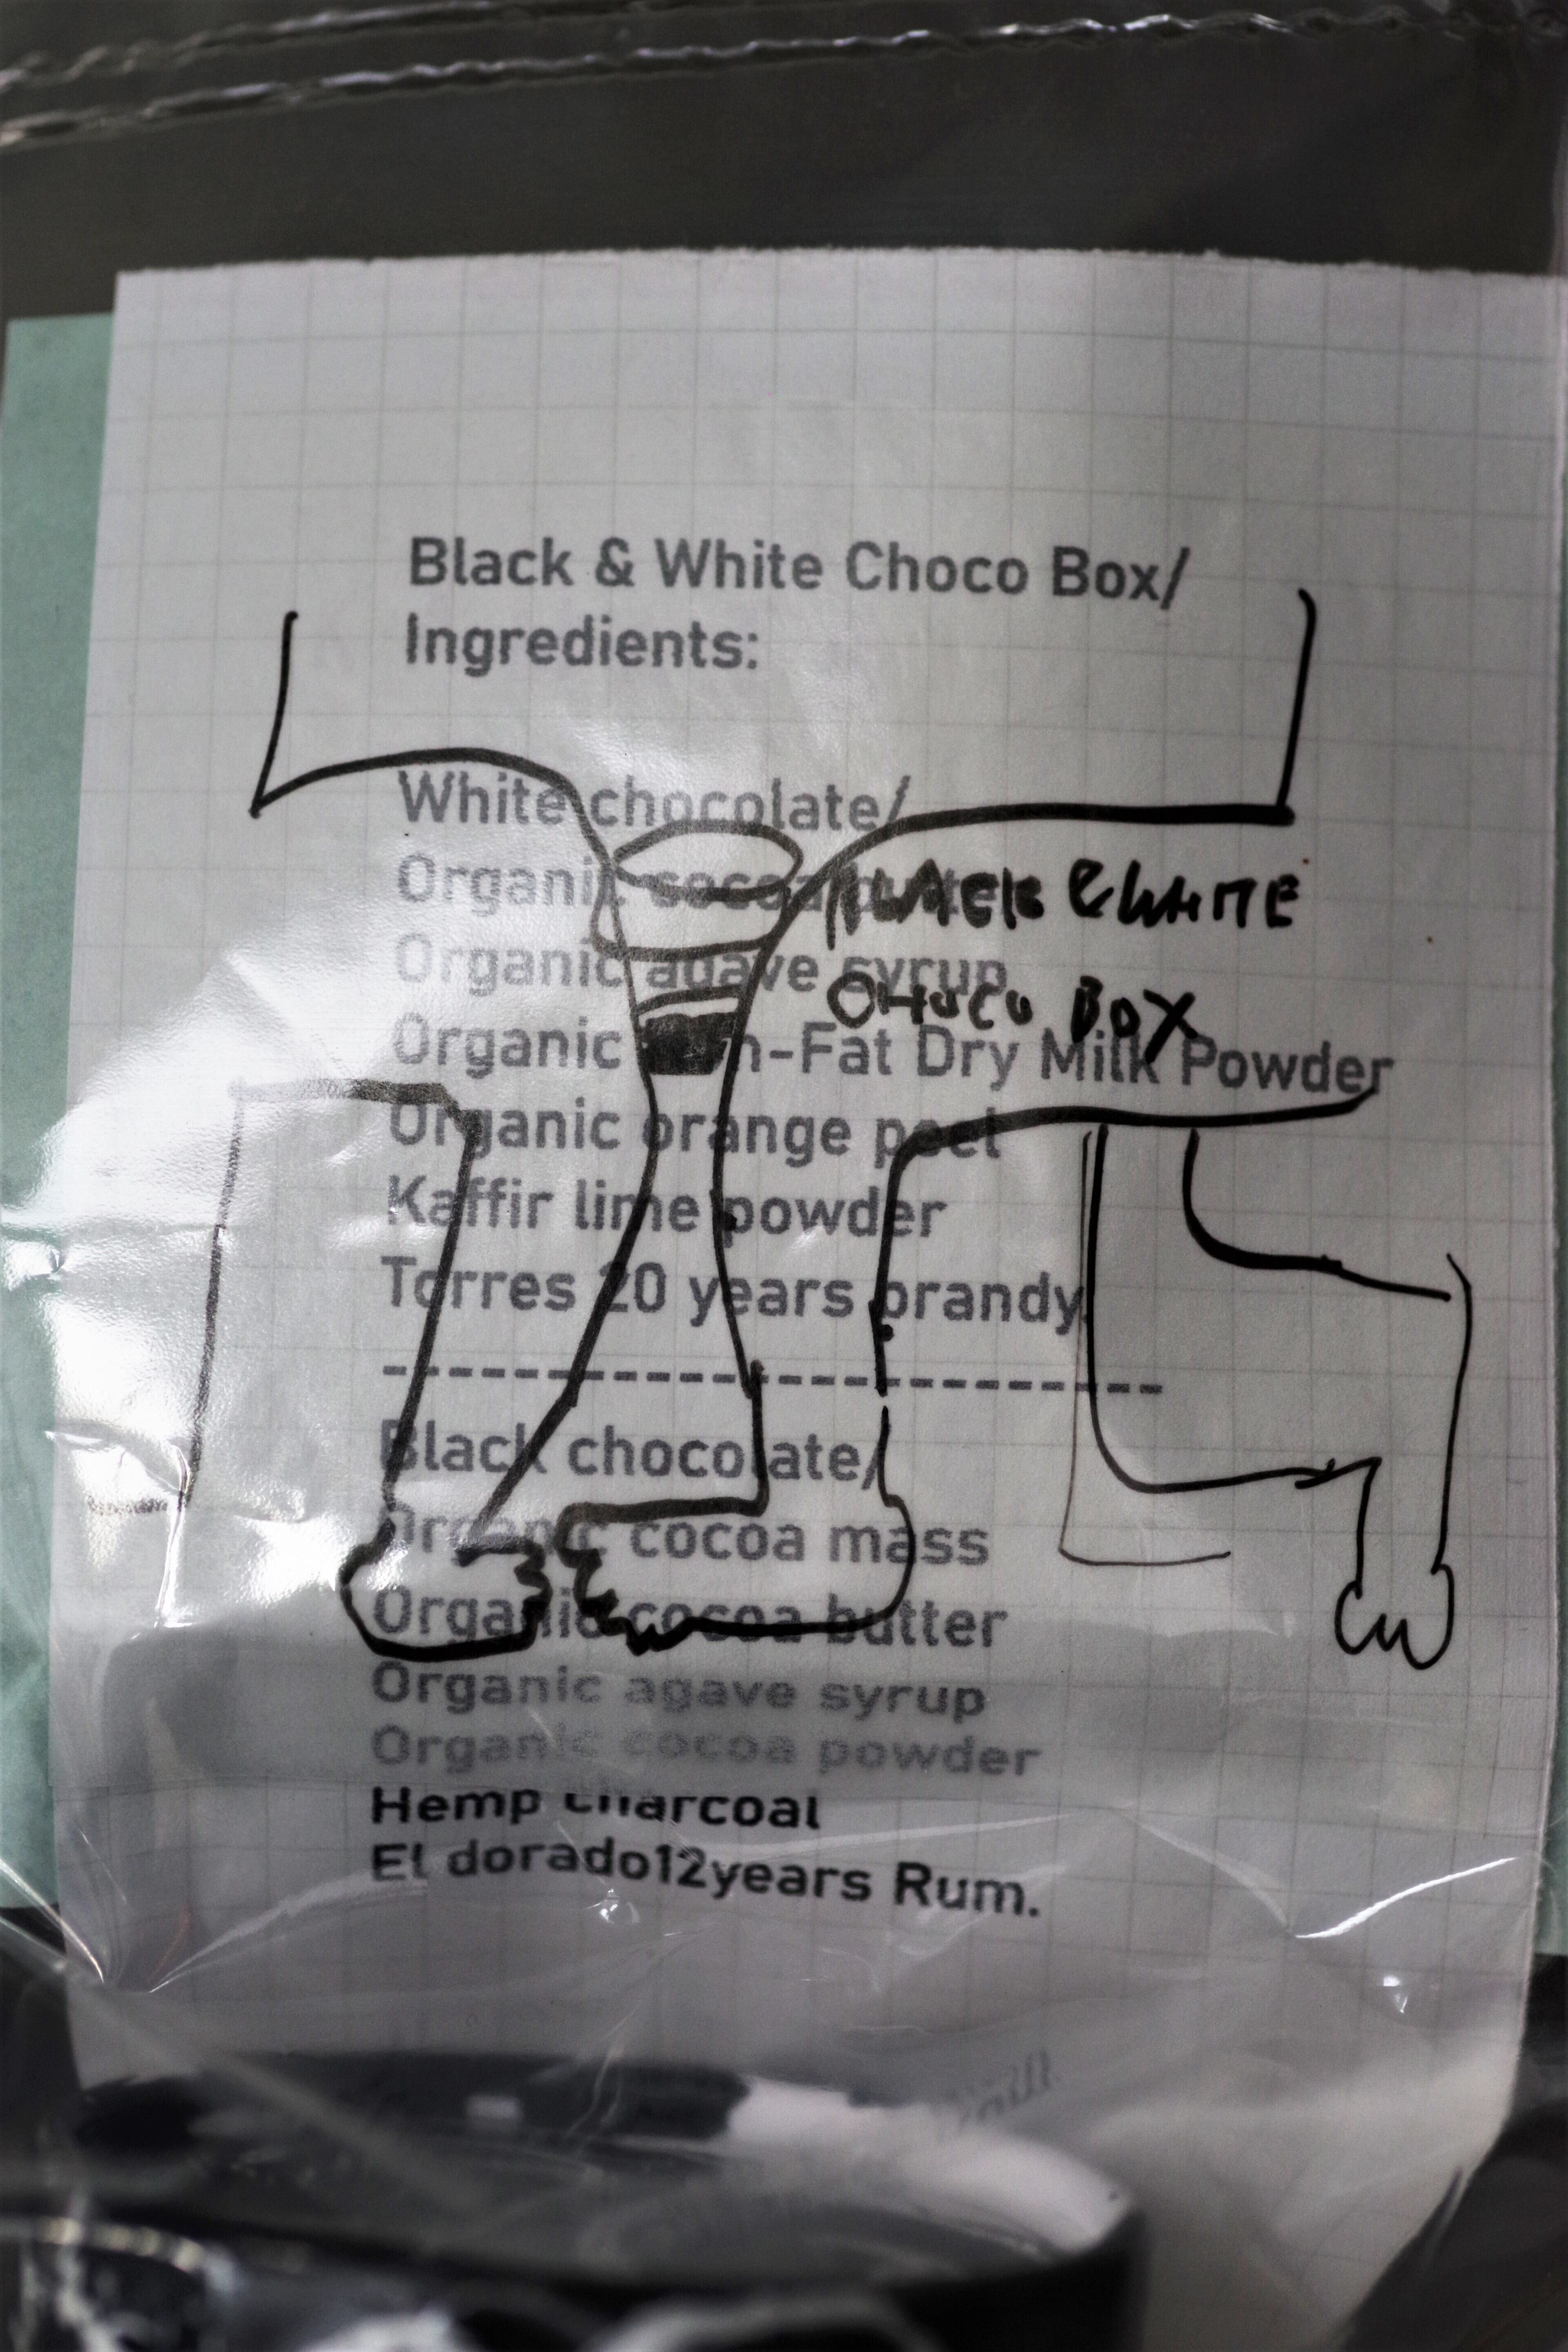 Black & White Choco Box/
Ingredients:
White chocolate/
Organic cocoa butter
BLACK & WHITE
Organic agave syrup
CHOCO BOX
Organic Non-Fat Dry Milk Powder
Organic orange peel
Kaffir lime powder
Torres 20 years brandy
--------------------------
Black chocolate/
Organic cocoa mass
Organic cocoa butter
Organic agave syrup
Organic cocoa powder
Hemp charcoal
El dorado12years Rum.